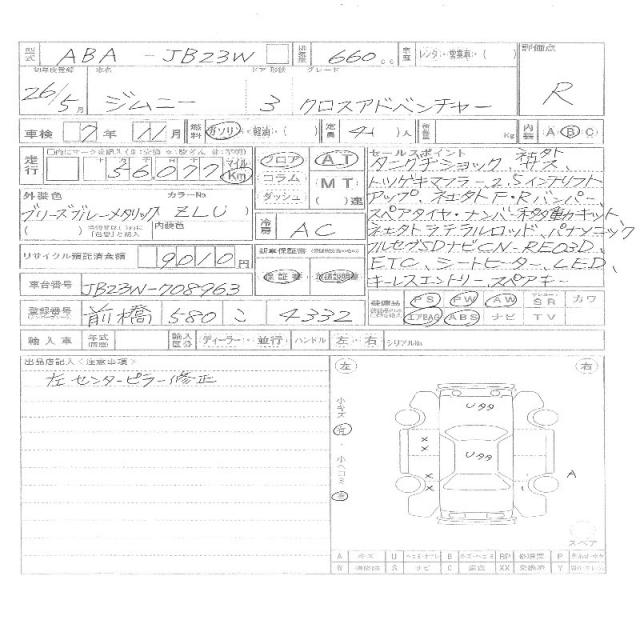 型式 ABA - JB23W 排気量 660 cc 車歴 レンタ・営業車・( ) 評価点
初年度登録 車名 ドア 形状 グレード R
26/5月 ジムニー 3 クロスアドベンチャー
車検 7年 11月 燃料 ガソリン・軽油・( ) 定員 4 人 積載量 Kg 内装 A B C
走行 56,077 マイル Km フロア AT セールスポイント
コラム タニグチショック
ダッシュ MT ( )速 トツゲキマフラー、2.5インチリフト
外装色 カラーNo. アップ、ネェクト F・Rバンパー
ブリーズブルーメタリック ZLU スペアタイヤ・ナンバー移動キット、
( ) 内装色 冷房 AC ラテラルロッド、パナソニック
リサイクル預託済金額 9010円 新車保証書 フルセグSDナビCN-RE03D、
保証書 取扱説明書 ETC、シートヒーター、LED、
車台番号 JB23W-708963 キーレスエントリー、スペアキー
登録番号 前橋 580 こ 4332 装備品 PS PW AW SR カワ
エアBAG ABS ナビ TV
輸入車 年式 輸入区分 ディーラー・並行 ハンドル 左・右 シリアルNo.
出品店記入<注意事項>
左センターピラー修正
左 右
小キズ 有 小ヘコミ 有
Uタタ
Uタタ
A
スペア
A キズ U B RP P
W S サビ C 腐食 XX 交換済 Y